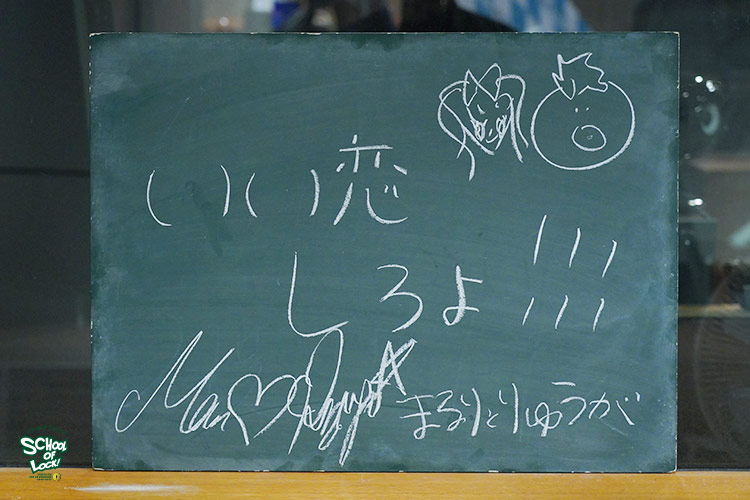 いい恋
しろよ!!!
まるりとりゅうが
SCHOOL
OF
LOCK!